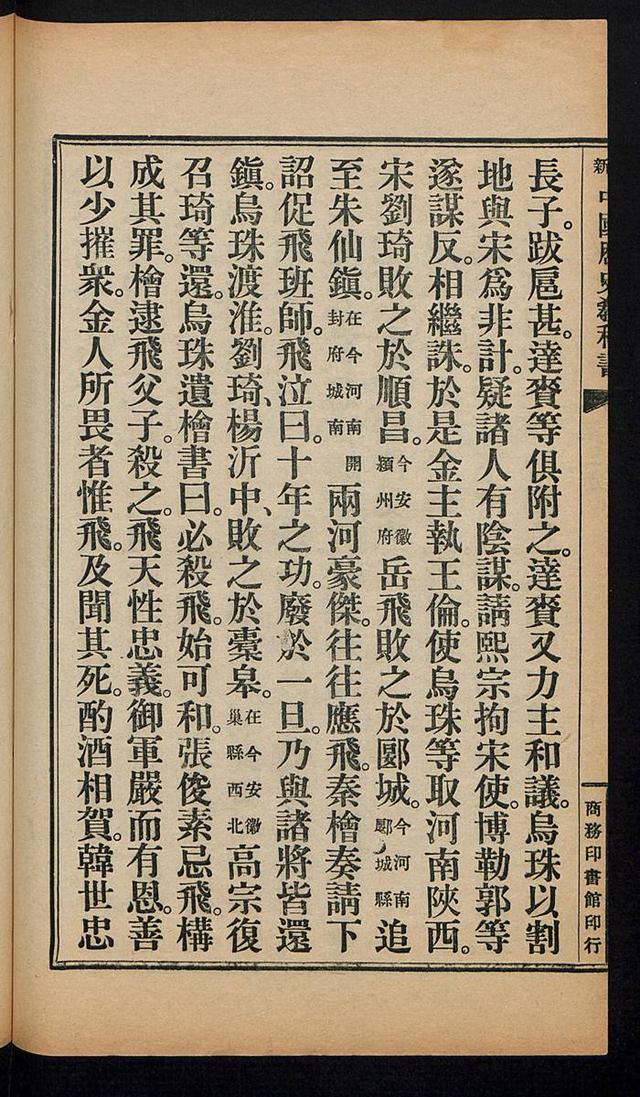 新中國歷史教科書
商務印書館印行
長子。跋扈甚。達賚等俱附之。達賚又力主和議。烏珠以割
地與宋爲非計。疑諸人有陰謀。請熙宗拘宋使。博勒郭等
遂謀反。相繼誅。於是金主執王倫。使烏珠等取河南陝西。
宋劉琦敗之於順昌。今安徽潁州府岳飛敗之於郾城。今河南郾城縣追
至朱仙鎭。在今河南開封府城南兩河豪傑。往往應飛。秦檜奏請下
詔促飛班師。飛泣曰。十年之功。廢於一旦。乃與諸將皆還
鎭。烏珠渡淮。劉琦、楊沂中、敗之於橐皋。在今安徽巢縣西北高宗復
召琦等還。烏珠遺檜書曰。必殺飛。始可和。張俊素忌飛。構
成其罪。檜逮飛父子。殺之。飛天性忠義。御軍嚴而有恩。善
以少摧衆。金人所畏者惟飛。及聞其死。酌酒相賀。韓世忠